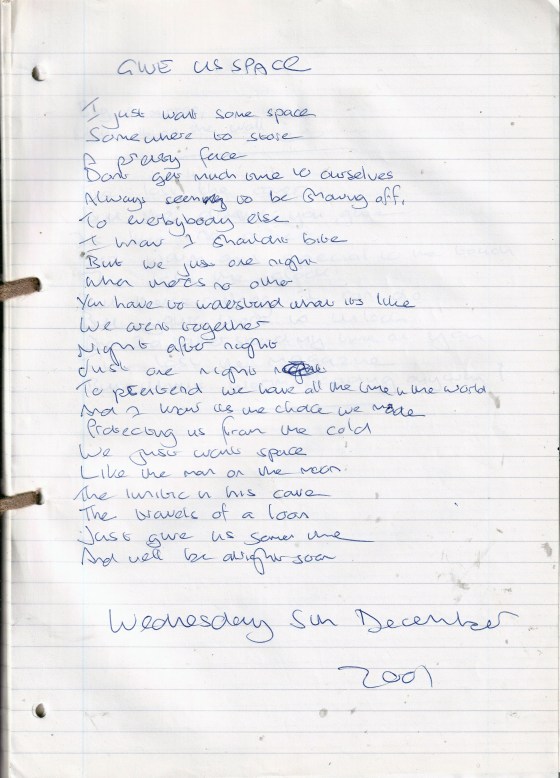 GIVE US SPACE
I just want some space
Somewhere to store
A pretty face
Dont get much time to ourselves
Always seeming to be showing off,
To everbybody else
I know I shouldnt bite
But we just one night
When theres no other
You have to understand what its like
We arent together
Night after night
Just one night
To pretend we have all the time in the world
And I know its the choice we made
Protecting us from the cold
We just want space
Like the man on the moon.
The lunitic in his cave
The travels of a loon
Just give us some time
And well be alright soon
Wednesday 5th December
2001